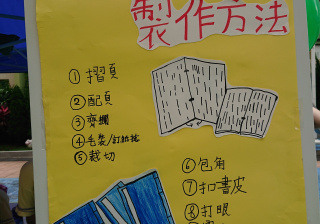 製作方法
① 摺頁
② 配頁
③ 齊欄
④ 毛裝/釘紙捻
⑤ 裁切
⑥ 包角
⑦ 扣書皮
⑧ 打眼